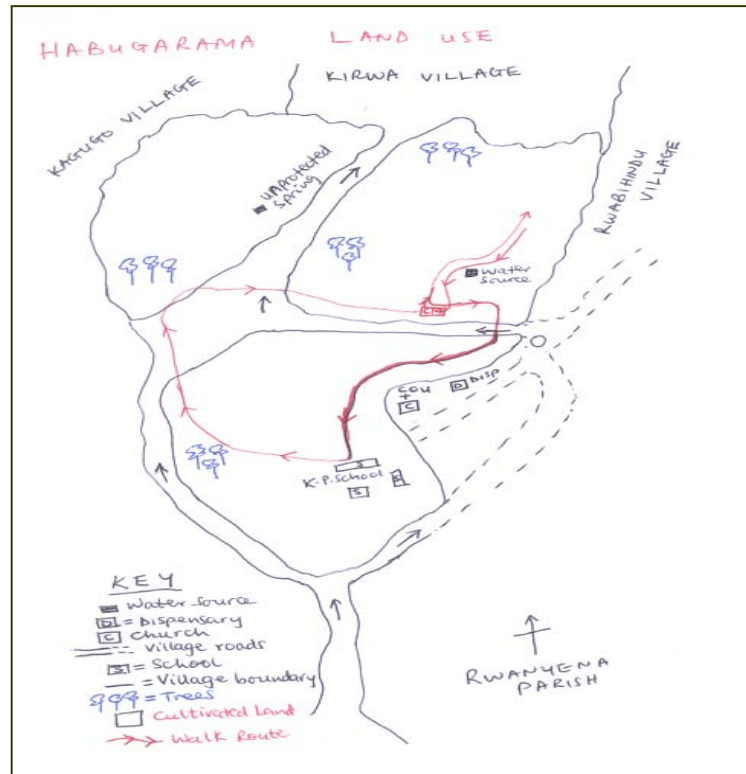 HABUGARAMA LAND USE
KIRWA VILLAGE
KAGUGO VILLAGE
RWABIHINDU VILLAGE
UNPROTECTED SPRING
Water source
COU
C
D DISP
S
K.P. School
S
S
KEY
Water source
D = Dispensary
C Church
Village roads
S = School
= Village boundary
= Trees
Cultivated Land
Walk Route
RWANYENA
PARISH